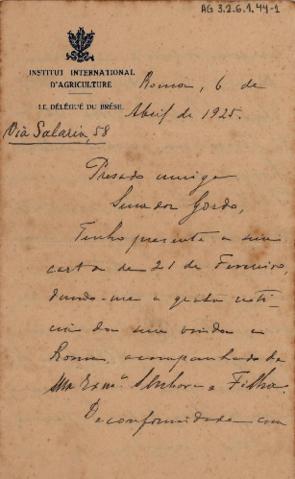 AG 3.2.6.1.44-1
INSTITUT INTERNATIONAL
D'AGRICULTURE
LE DÉLÉGUÉ DU BRÉSIL
Via Salaria, 58
Roma, 6 de
Abril de 1925.
Presado amigo
Senador Gordo,
Tenho presente a sua
carta de 21 de Fevereiro,
dando-me a grata noti-
cia da sua vinda a
Roma, acompanhado de
sua Exmª. Senhora e Filha.
De conformidade com